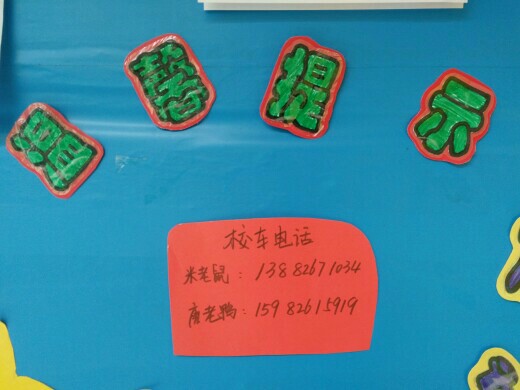 温馨提示
校车电话
米老鼠：13882671034
唐老鸭：15982615919